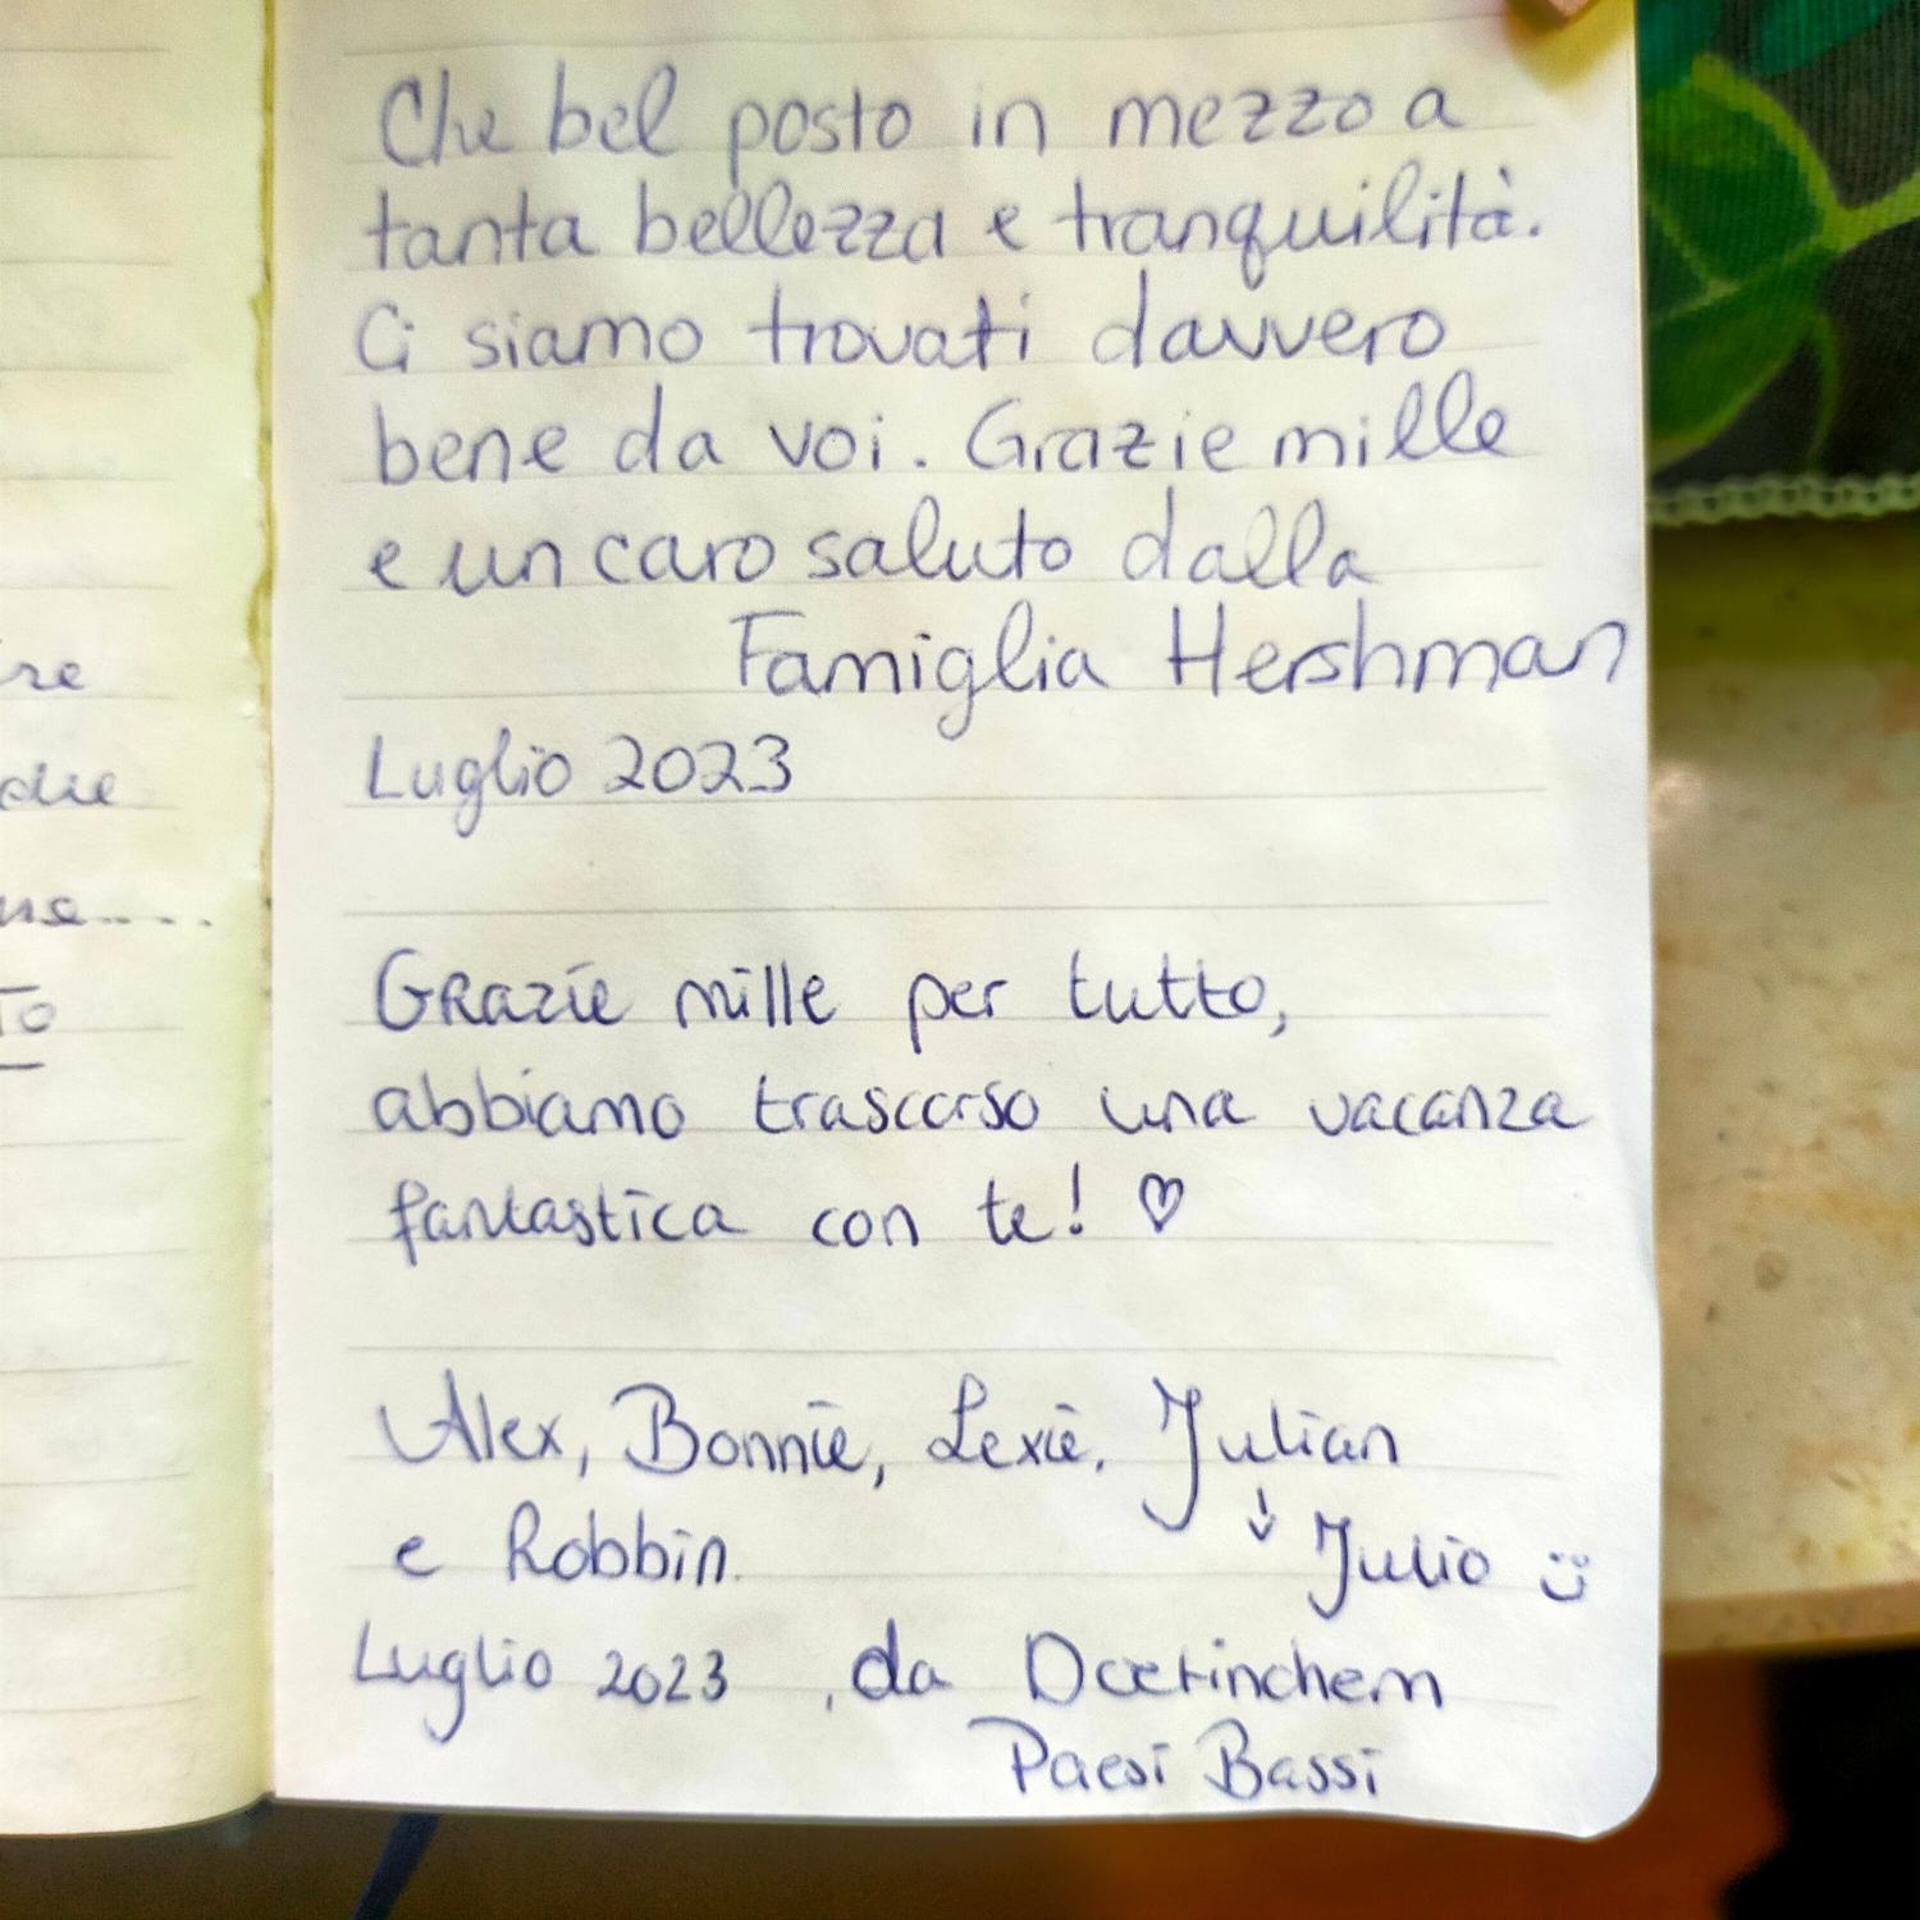 re
die
ne.....
To
Che bel posto in mezzo a
tanta bellezza e tranquilità.
Ci siamo trovati davvero
bene da voi. Grazie mille
e un caro saluto dalla
Famiglia Hershman
Luglio 2023
Grazie mille per tutto,
abbiamo trascorso una vacanza
fantastica con te! ♡
Alex, Bonnie, Lexie, Julian
e Robbin.
↓ Julio ☺
Luglio 2023, da Doetinchem
Paesi Bassi